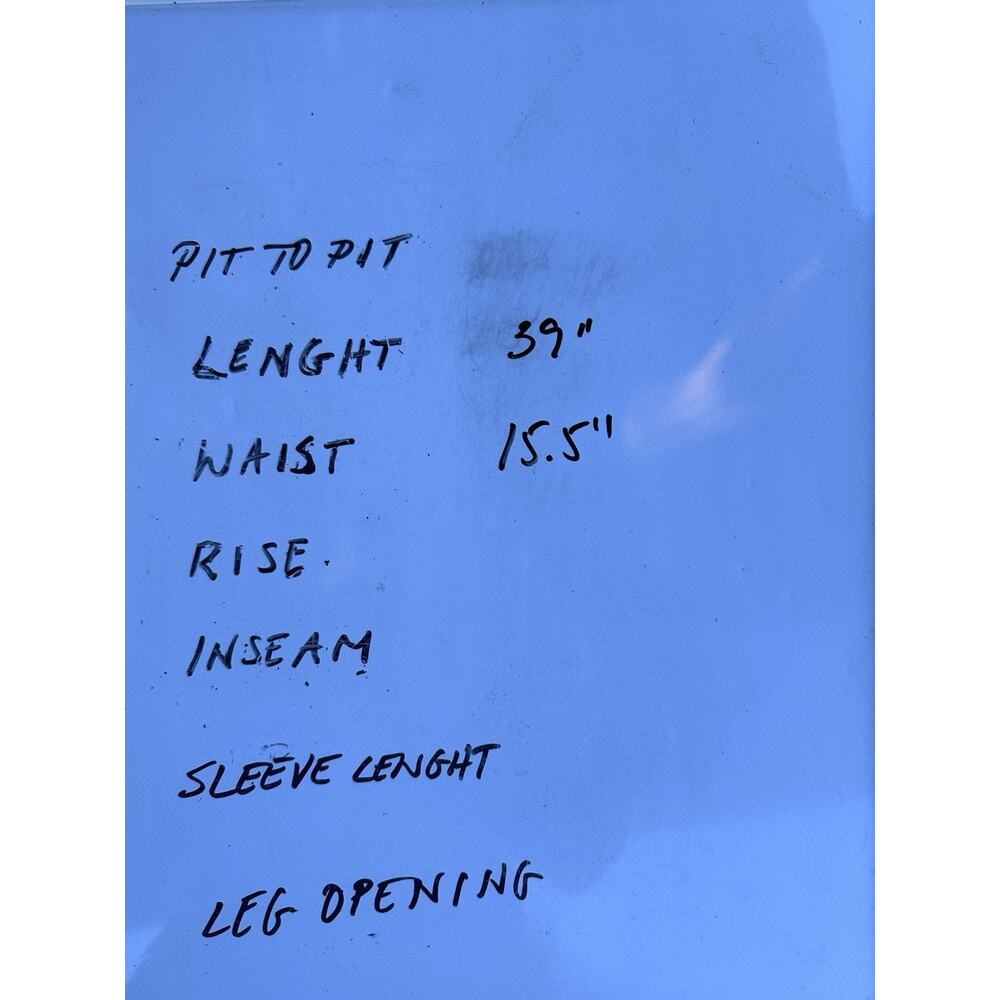 PIT TO PIT
LENGHT 39"
WAIST 15.5"
RISE.
INSEAM
SLEEVE LENGHT
LEG OPENING